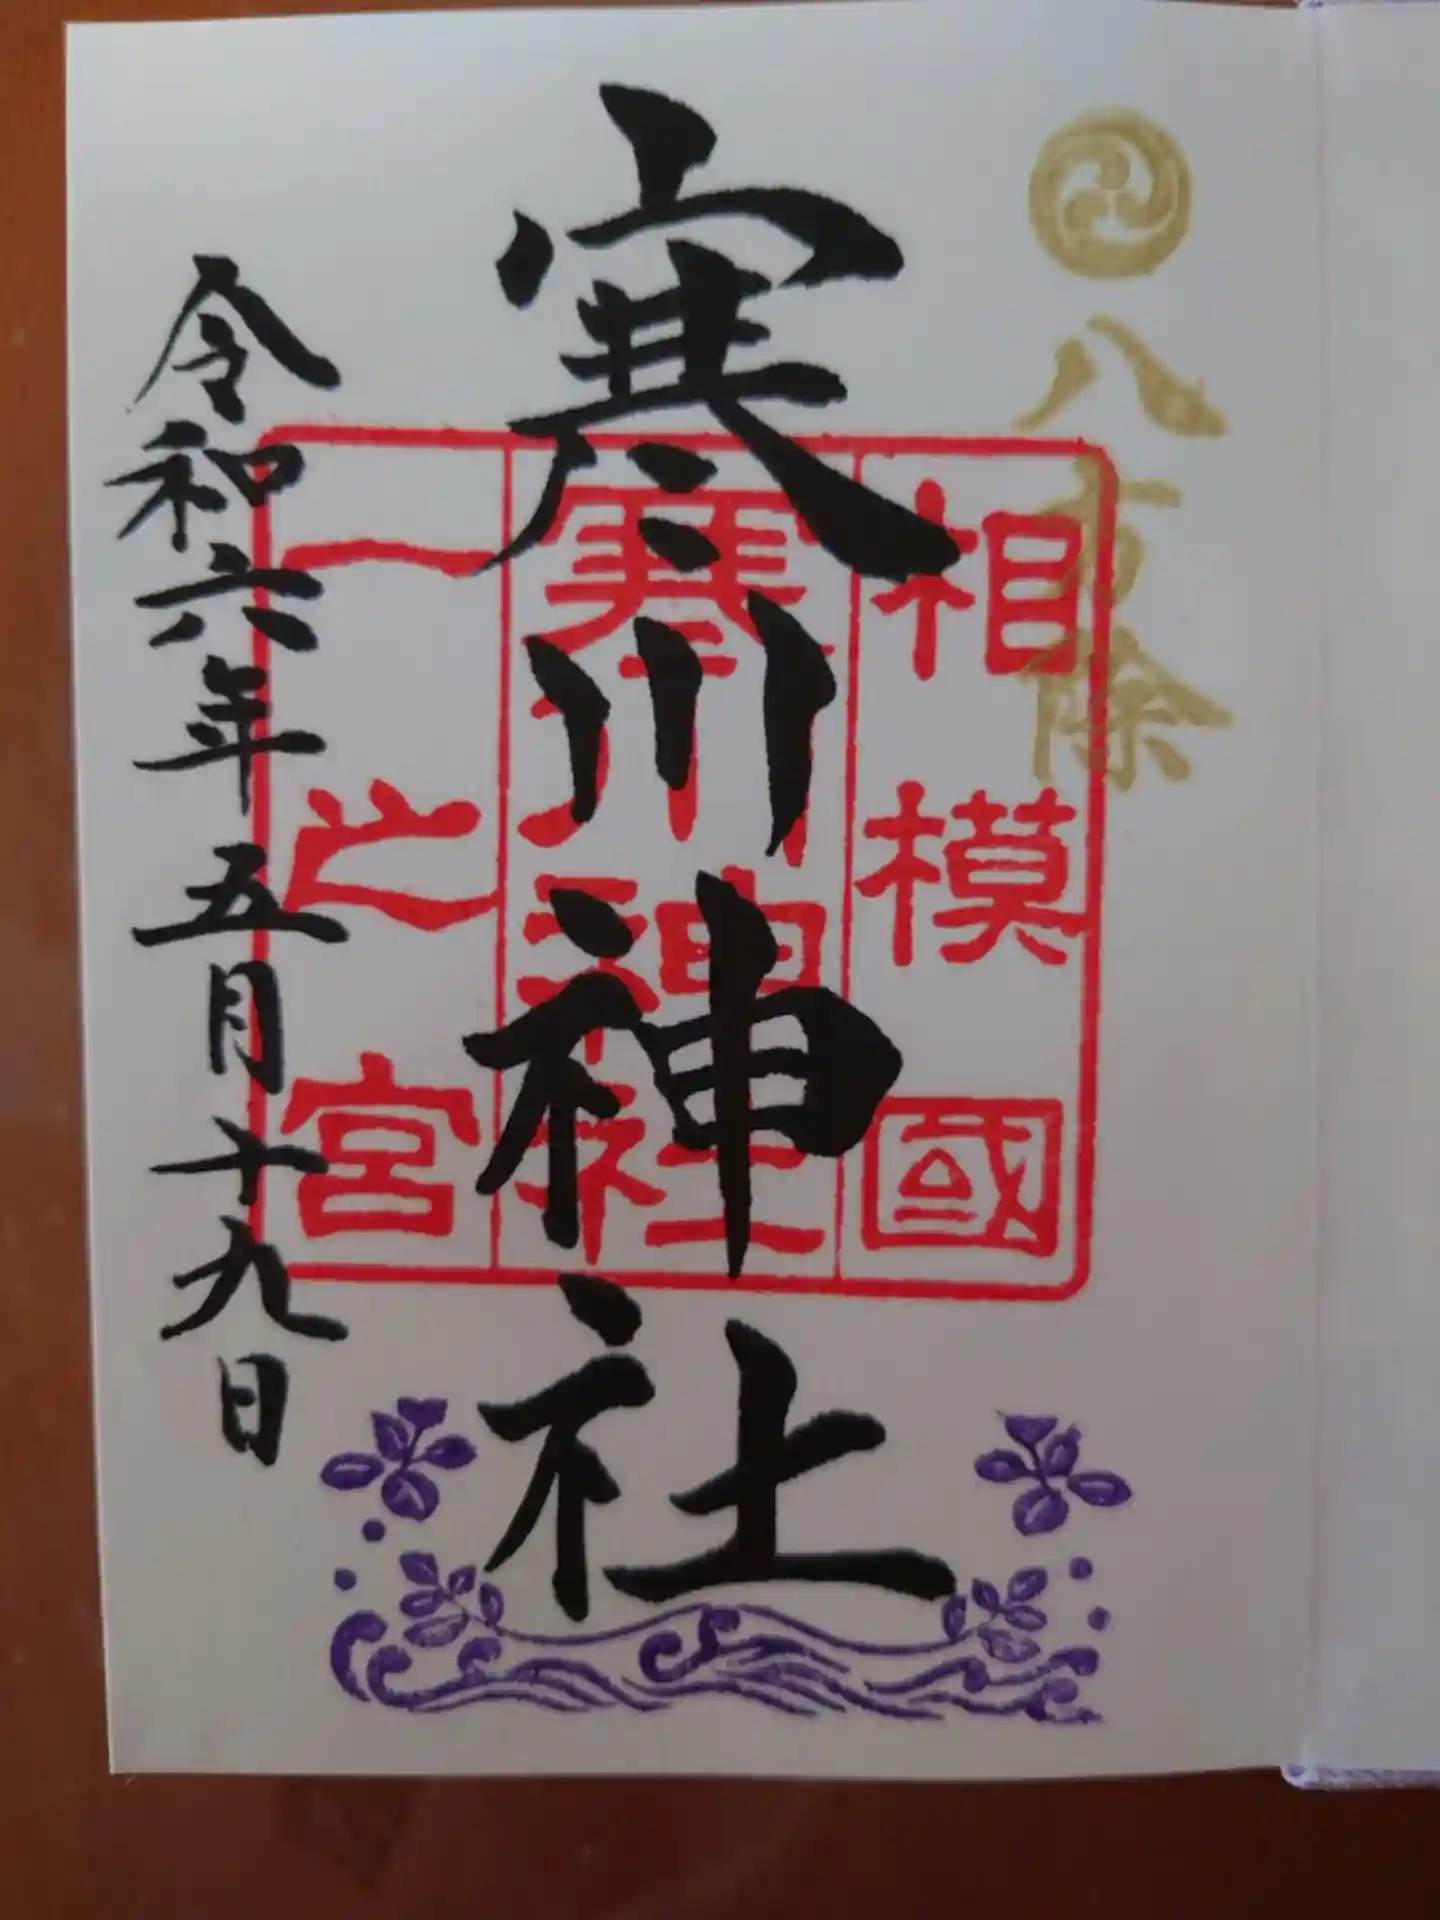 八方除
相模國
寒川神社
一之宮
寒川神社
令和六年五月十九日